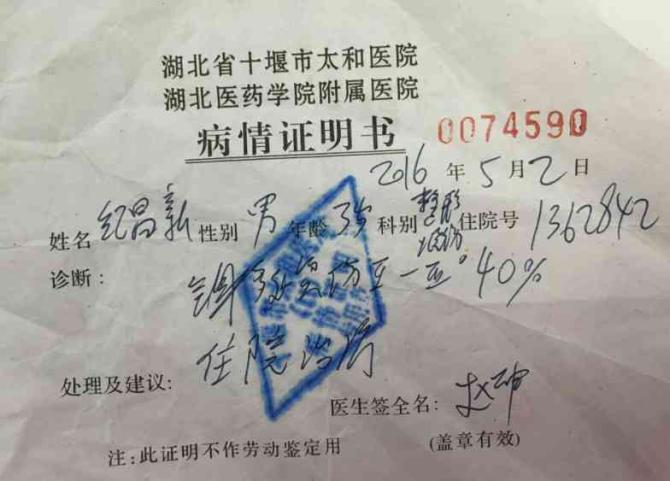 湖北省十堰市太和医院
湖北医药学院附属医院
病情证明书 0074590
2016年5月2日
姓名 纪昌新 性别 男 年龄 3岁 科别 整形 住院号 1362842
诊断:
全身多处烫伤Ⅱ-Ⅲ° 40%
住院治疗
处理及建议:
医生签全名: 赵坤
注:此证明不作劳动鉴定用 (盖章有效)